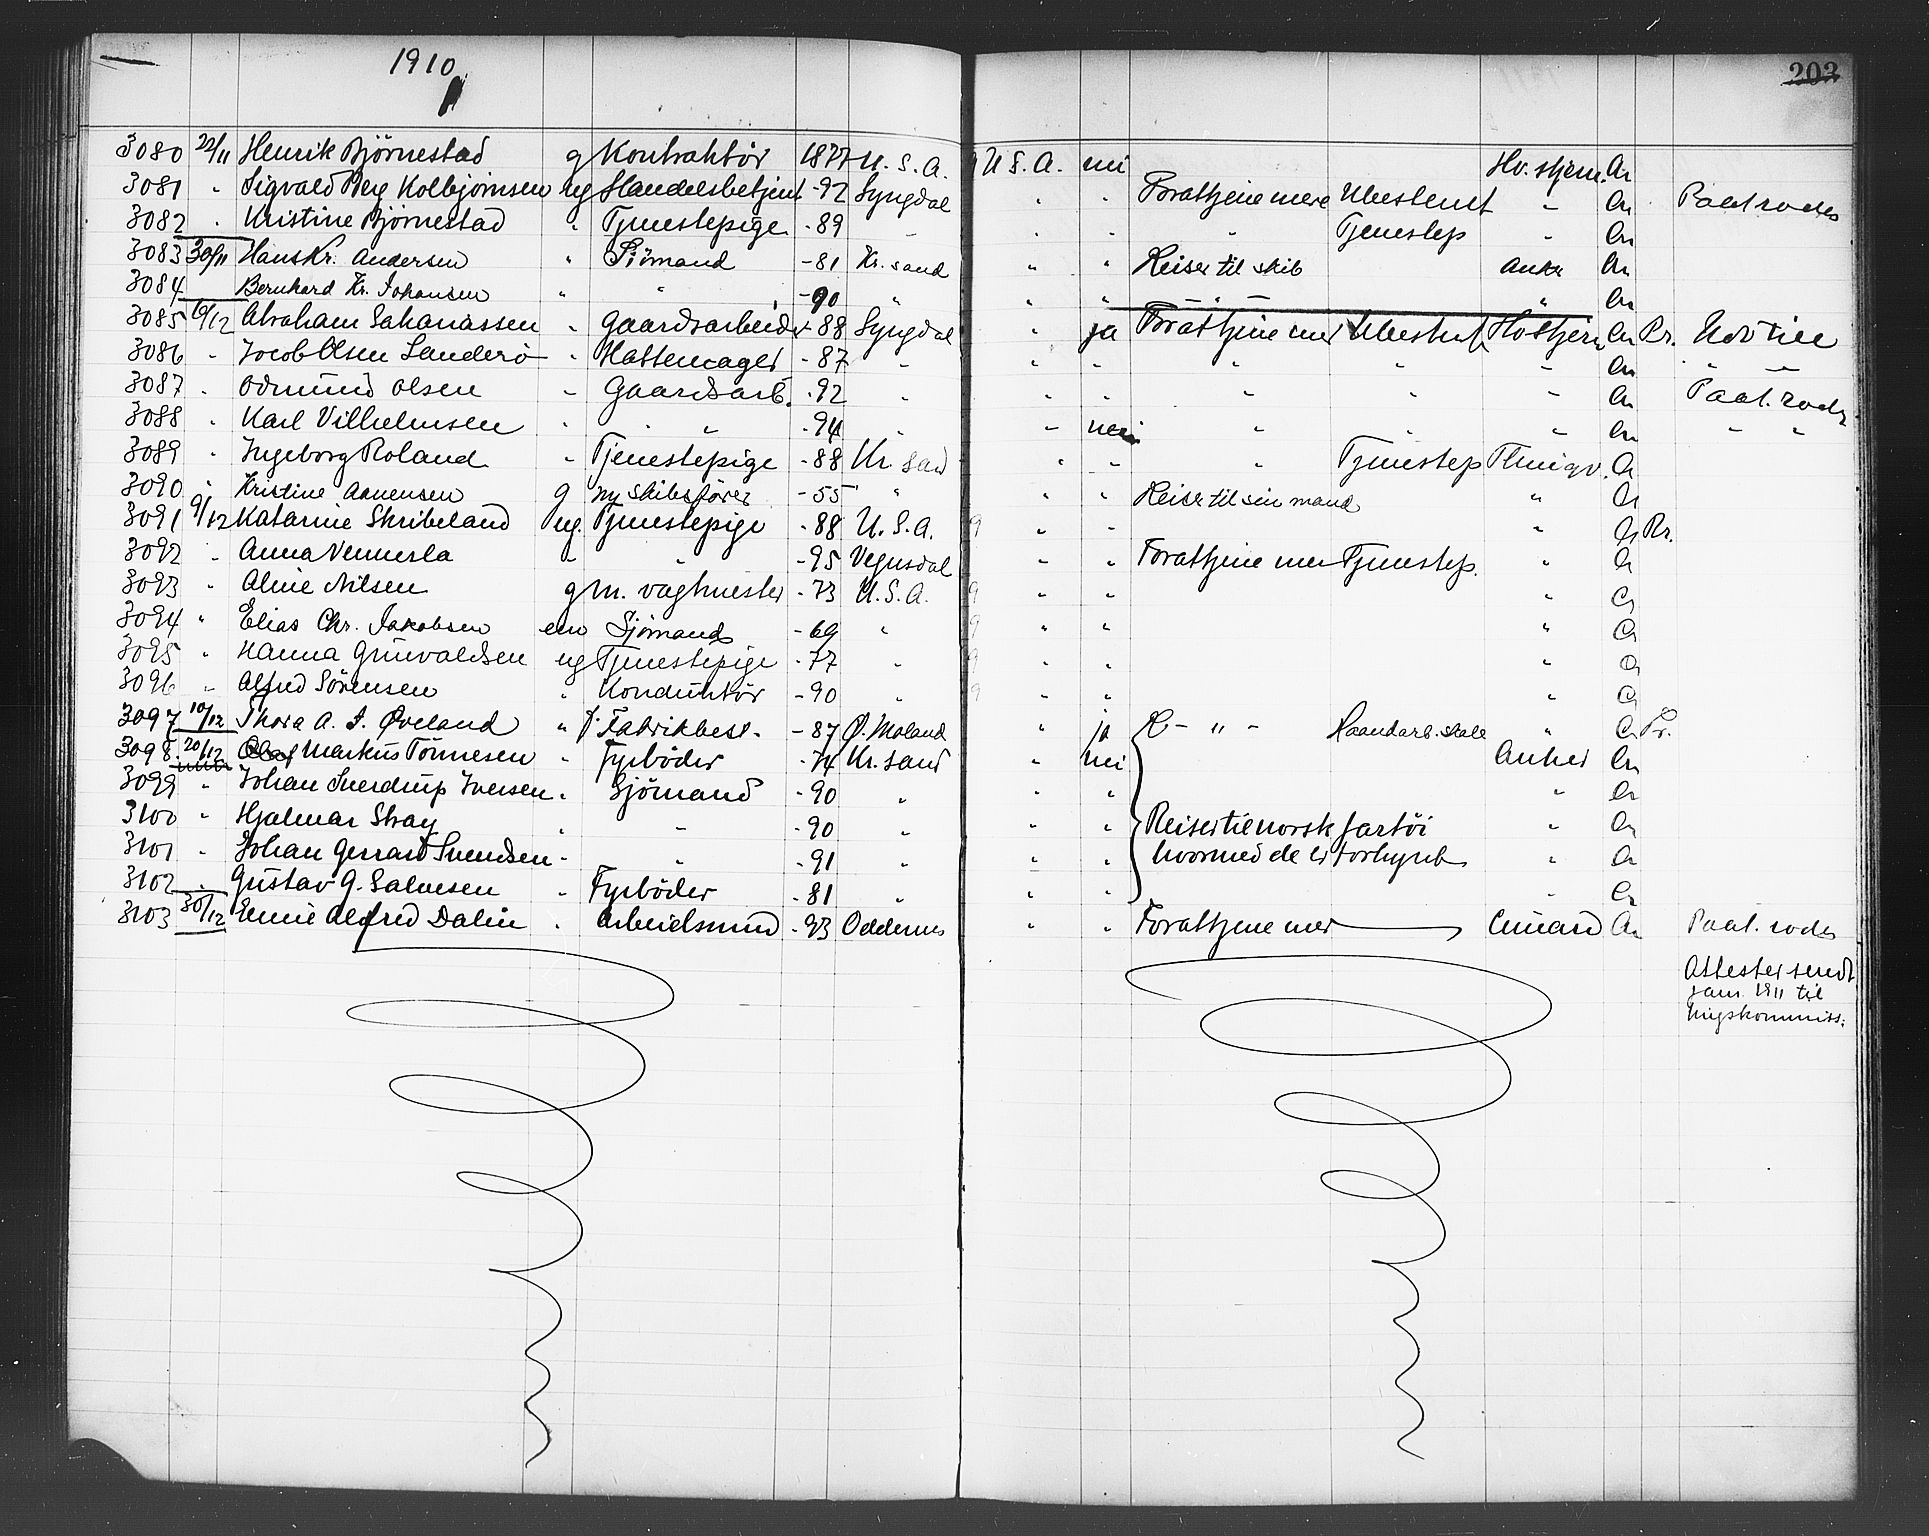 1910
203
3080 22/11 Henrik Bjørnestad g Kontraktör 1877 U. S. A. g U. S. A. nei Hv. stjern. Cn
3081 " Sigvald Berg Kolbjörnsen ug Handelsbetjent -92 Lyngdal " " Forattjene mere Ubestemt " Cn Paat. rodes
3082 " Kristine Bjørnestad " Tjenestepige -89 " " " " Tjenestep " Cn
3083 30/11 Hans Kr. Andersen " Sjömand -81 Kr. sand " " Reiser til skib Anker Cn
3084 Bernhard Kr. Johansen " " -90 " " " " " Cn
3085 6/12 Abraham Sakariassen " Gaardsarbeider -88 Lyngdal " ja Forattjene mer Ubestemt Hv stjern Cn Pr.
3086 " Jacob Olsen Sanderö " Hattemager -87 " " " " " " Cn " "
3087 " Odmund Olsen " Gaardsarb. -92 " " " " " " Cn Paat. rodes
3088 " Karl Vilhelmsen " " " -94 " " nei " " " Cn " "
3089 " Ingeborg Roland " Tjenestepige -88 Kr. sand " " " Tjenestep Thingv. Cn
3090 " Kristine Aanensen g m/ skibsfører -55 " " " Reiser til sin mand " Cn
3091 9/12 Katarine Skribeland ug. Tjenestepige -88 U. S. A. g " " " Cn Pr.
3092 " Anna Vennesla " " -95 Vegusdal " " Forattjene mer Tjenestep. " Cn
3093 " Aline Nilsen g m. vagtmester -73 U. S. A. g " " " Cn
3094 " Elias Chr. Jakobsen em Sjömand -69 " g " " " Cn
3095 " Hanna Grunvaldsen ug Tjenestepige -77 " g " " " Cn
3096 " Alfred Sörensen " Konduktör -90 " g " " " Cn
3097 10/12 Thora A. S. Øveland " f. Fabrikbest. -87 Ø. Moland " ja R - " - Haandarb. skole " Cn Pr.
3098 20/12 Markus Tönnesen " Fyrböder -74 Kr. sand " nei Anker Cn
3099 " Johan Sverdrup Iversen " Sjömand -90 " " " " Cn
3100 " Hjalmar Stray " " -90 " " " Reiser til norsk fartöi " Cn
3101 " Johan Gerrard Svendsen " " -91 " " " hvormed de er forhyret " Cn
3102 " Gustav G. Salvesen " Fyrböder -81 " " " " Cn
3103 30/12 Alfred Dalin " Arbeidsmand -93 Oddernes " " Forattjene mer Cunard Cn Paat. rodes
Attester sendt
jan. 1911 til